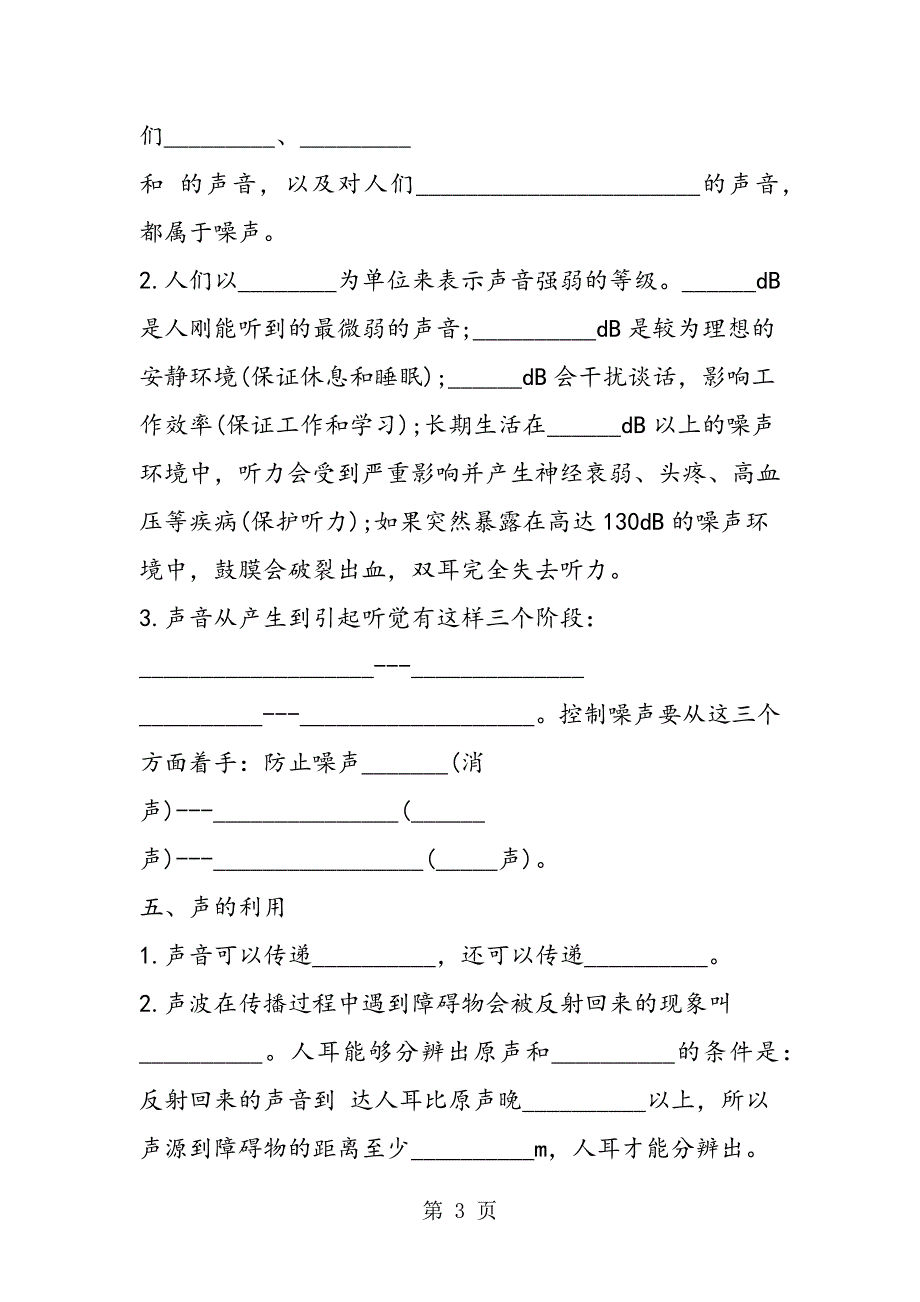 们_________、_________
和 的声音，以及对人们_______________________的声音，
都属于噪声。
2.人们以________为单位来表示声音强弱的等级。______dB
是人刚能听到的最微弱的声音;__________dB是较为理想的
安静环境(保证休息和睡眠);______dB会干扰谈话，影响工
作效率(保证工作和学习);长期生活在______dB以上的噪声
环境中，听力会受到严重影响并产生神经衰弱、头疼、高血
压等疾病(保护听力);如果突然暴露在高达130dB的噪声环
境中，鼓膜会破裂出血，双耳完全失去听力。
3.声音从产生到引起听觉有这样三个阶段：
___________________---______________
__________---___________________。控制噪声要从这三个
方面着手：防止噪声_______(消
声)---_______________(______
声)---_________________(_____声)。
五、声的利用
1.声音可以传递__________，还可以传递__________。
2.声波在传播过程中遇到障碍物会被反射回来的现象叫
__________。人耳能够分辨出原声和__________的条件是：
反射回来的声音到 达人耳比原声晚__________以上，所以
声源到障碍物的距离至少__________m，人耳才能分辨出。
第 3 页